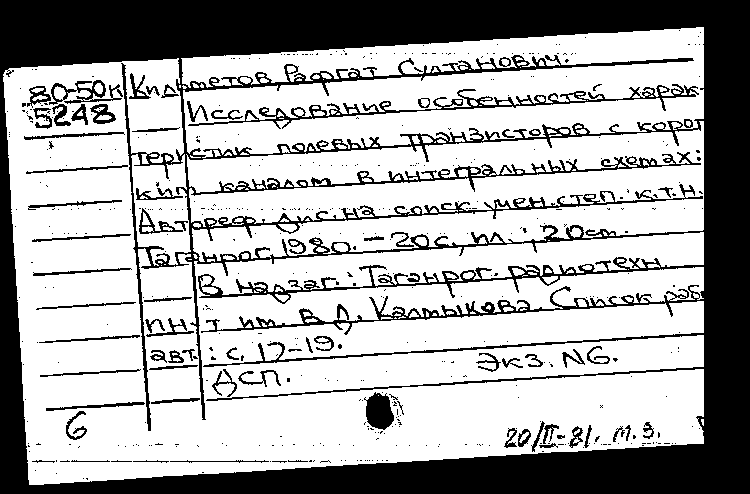 80-50к Кильметов, Рафгат Султанович.
5248 Исследование особенностей харак-
теристик полевых транзисторов с корот
ким каналом в интегральных схемах:
Автореф. дис. на соиск. учен. степ. к.т.н.
Таганрог, 1980. - 20 с., ил.; 20 см.
В надзаг.: Таганрог. радиотехн.
ин-т им. В.Д. Калмыкова. Список
авт.: с. 17-19.
ДСП. Экз. N6.
6
20/II-81. м.з.